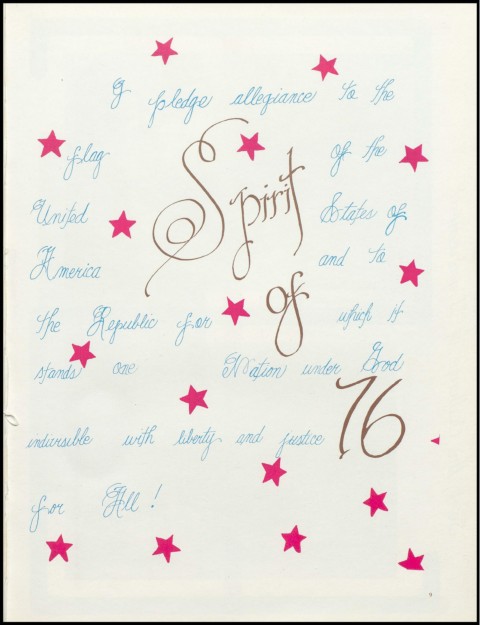 I pledge allegiance to the
flag of the
Spirit
United States of
America and to
of
the Republic for which it
stands one Nation under Good
76
indivisible with liberty and justice
for All!